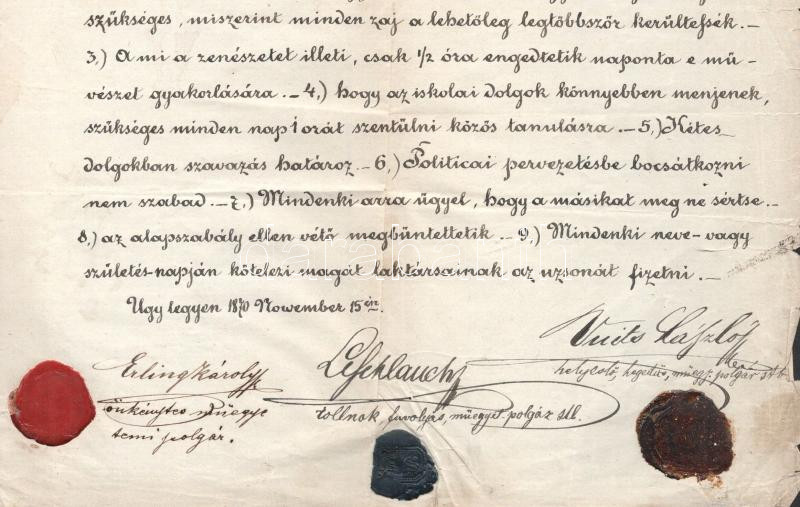 szükséges, miszerint minden zaj a lehetőleg legtöbbször kerültessék. –
3,) A mi a zenészetet illeti, csak 1/2 óra engedtetik naponta e mű-
vészet gyakorlására. – 4,) hogy az iskolai dolgok könnyebben menjenek,
szükséges minden nap 1 orát szentülni közös tanulásra. – 5,) Kétes
dolgokban szavazás határoz. – 6,) Politicai pervezetésbe bocsátkozni
nem szabad. – 7,) Mindenki arra ügyel, hogy a másikat meg ne sértse. –
8,) az alapszabály ellen vétő megbüntettetik. – 9,) Mindenki neve- vagy
születés-napján kötelezi magát laktársainak az uzsonát fizetni. –
Ugy legyen 1870 November 15én.
Erling Károly
önkénytes műegye
temi polgár.
Leschlauch
tollnok, fuvolás, műegyet. polgár stb.
Vuits László
helycső, hegedűs, műegy. polgár stb.